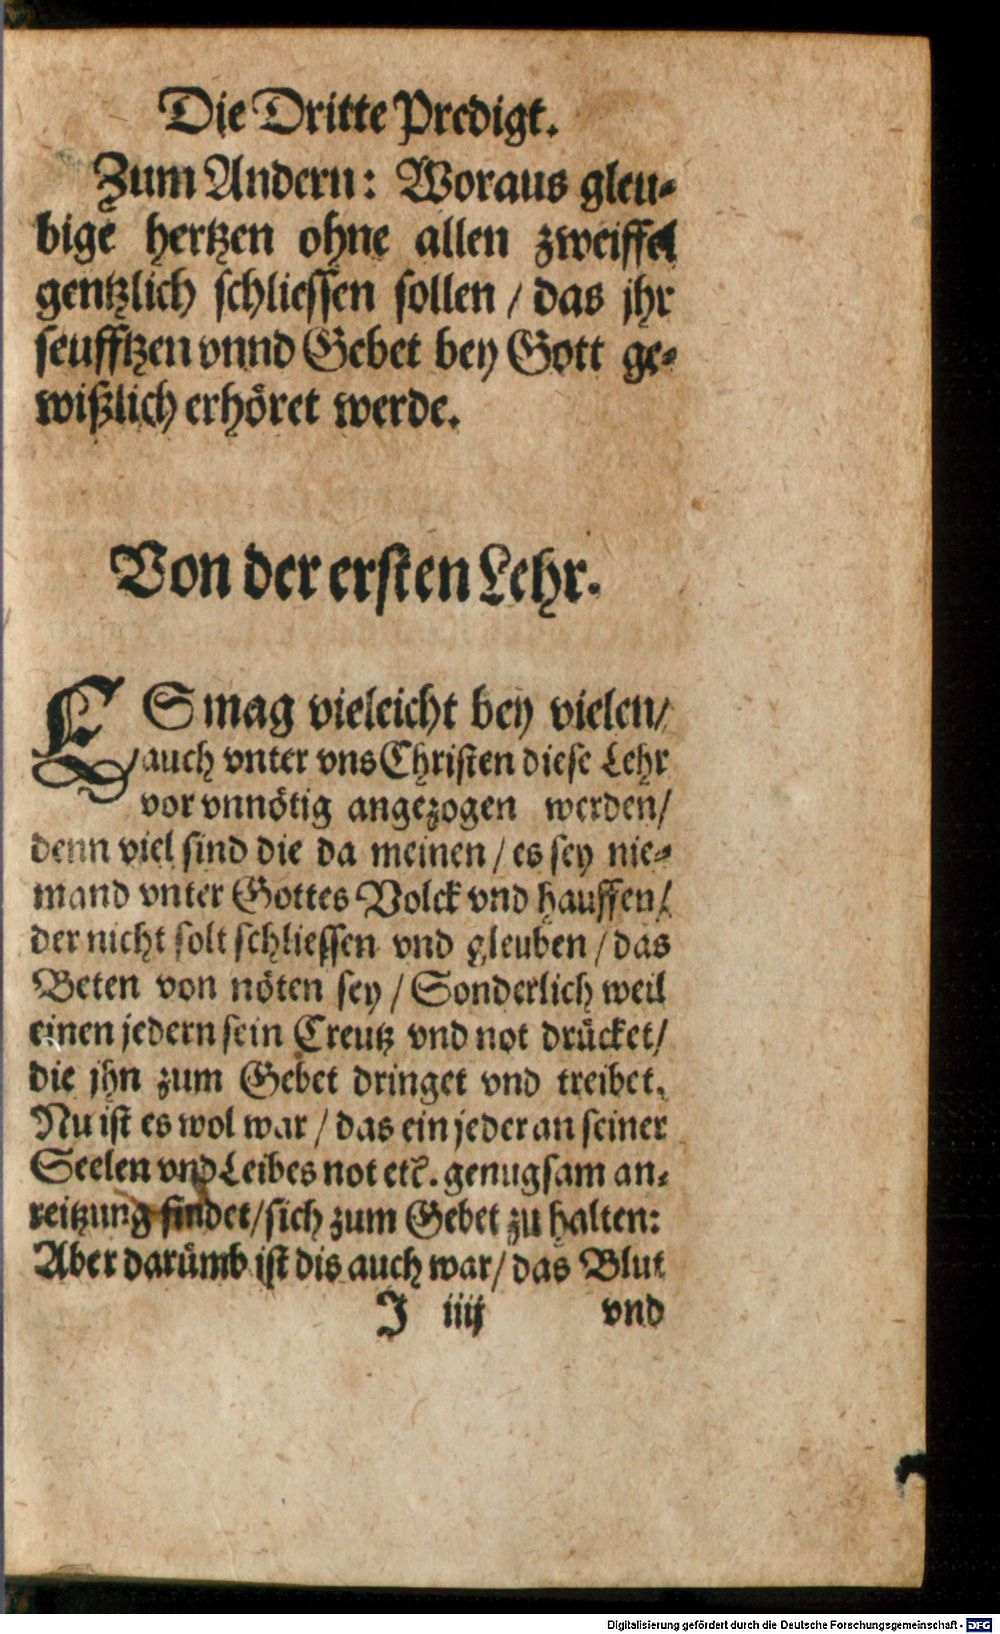 Die Dritte Predigt.
Zum Andern: Woraus gleu-
bige hertzen ohne allen zweiffel
gentzlich schliessen sollen / das jhr
seufftzen vnnd Gebet bey Gott ge-
wißlich erhöret werde.
Von der ersten Lehr.
ES mag vieleicht bey vielen /
auch vnter vns Christen diese Lehr
vor vnnötig angezogen werden /
denn viel sind die da meinen / es sey nie-
mand vnter Gottes Volck vnd hauffen /
der nicht solt schliessen vnd gleuben / das
Beten von nöten sey / Sonderlich weil
einen jedern sein Creutz vnd not drücket /
die jhn zum Gebet dringet vnd treibet.
Nu ist es wol war / das ein jeder an seiner
Seelen vnd Leibes not etc. genugsam an-
reitzung findet / sich zum Gebet zu halten:
Aber darümb ist dis auch war / das Blut
J iiij vnd
Digitalisierung gefördert durch die Deutsche Forschungsgemeinschaft - DFG